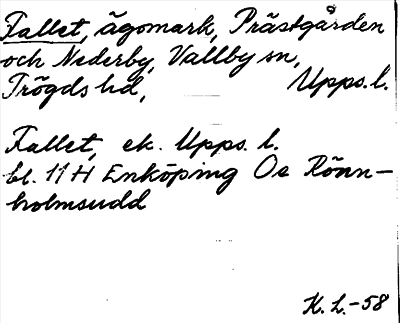 Fallet, ägomark, Prästgården
och Nederby, Vallby sn,
Trögds hd, Upps. l.
Fallet, ek. Upps. l.
bl. 11 H Enköping Os Rönn-
holmsudd
K. L. -58